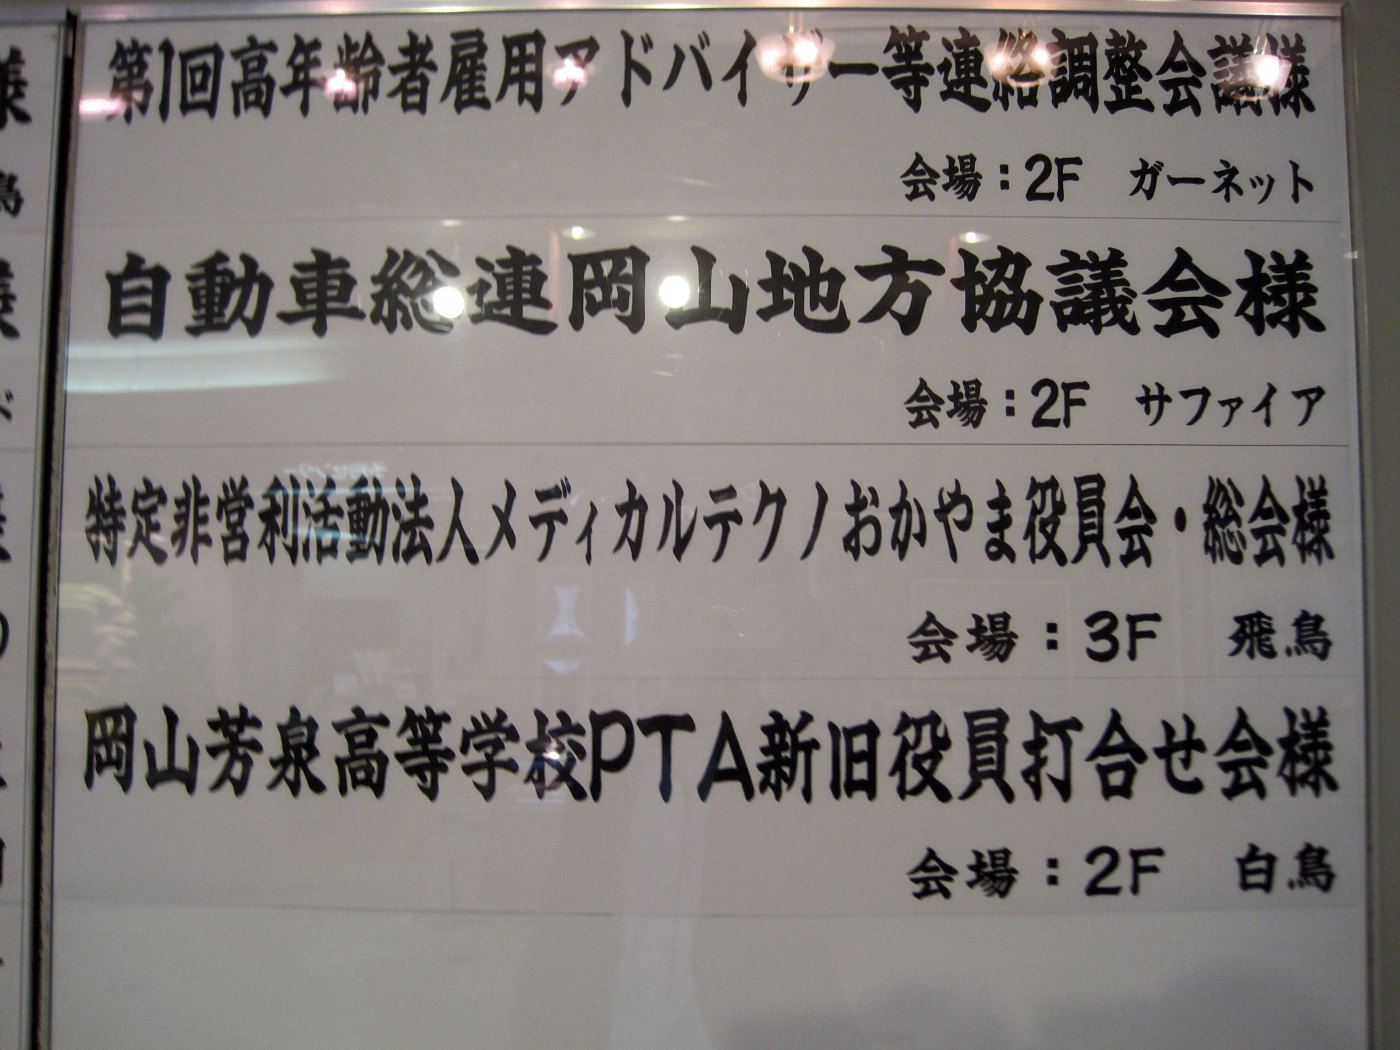 第1回高年齢者雇用アドバイザー等連絡調整会議様
会場：2F　ガーネット
自動車総連岡山地方協議会様
会場：2F　サファイア
特定非営利活動法人メディカルテクノおかやま役員会・総会様
会場：3F　飛鳥
岡山芳泉高等学校PTA新旧役員打合せ会様
会場：2F　白鳥